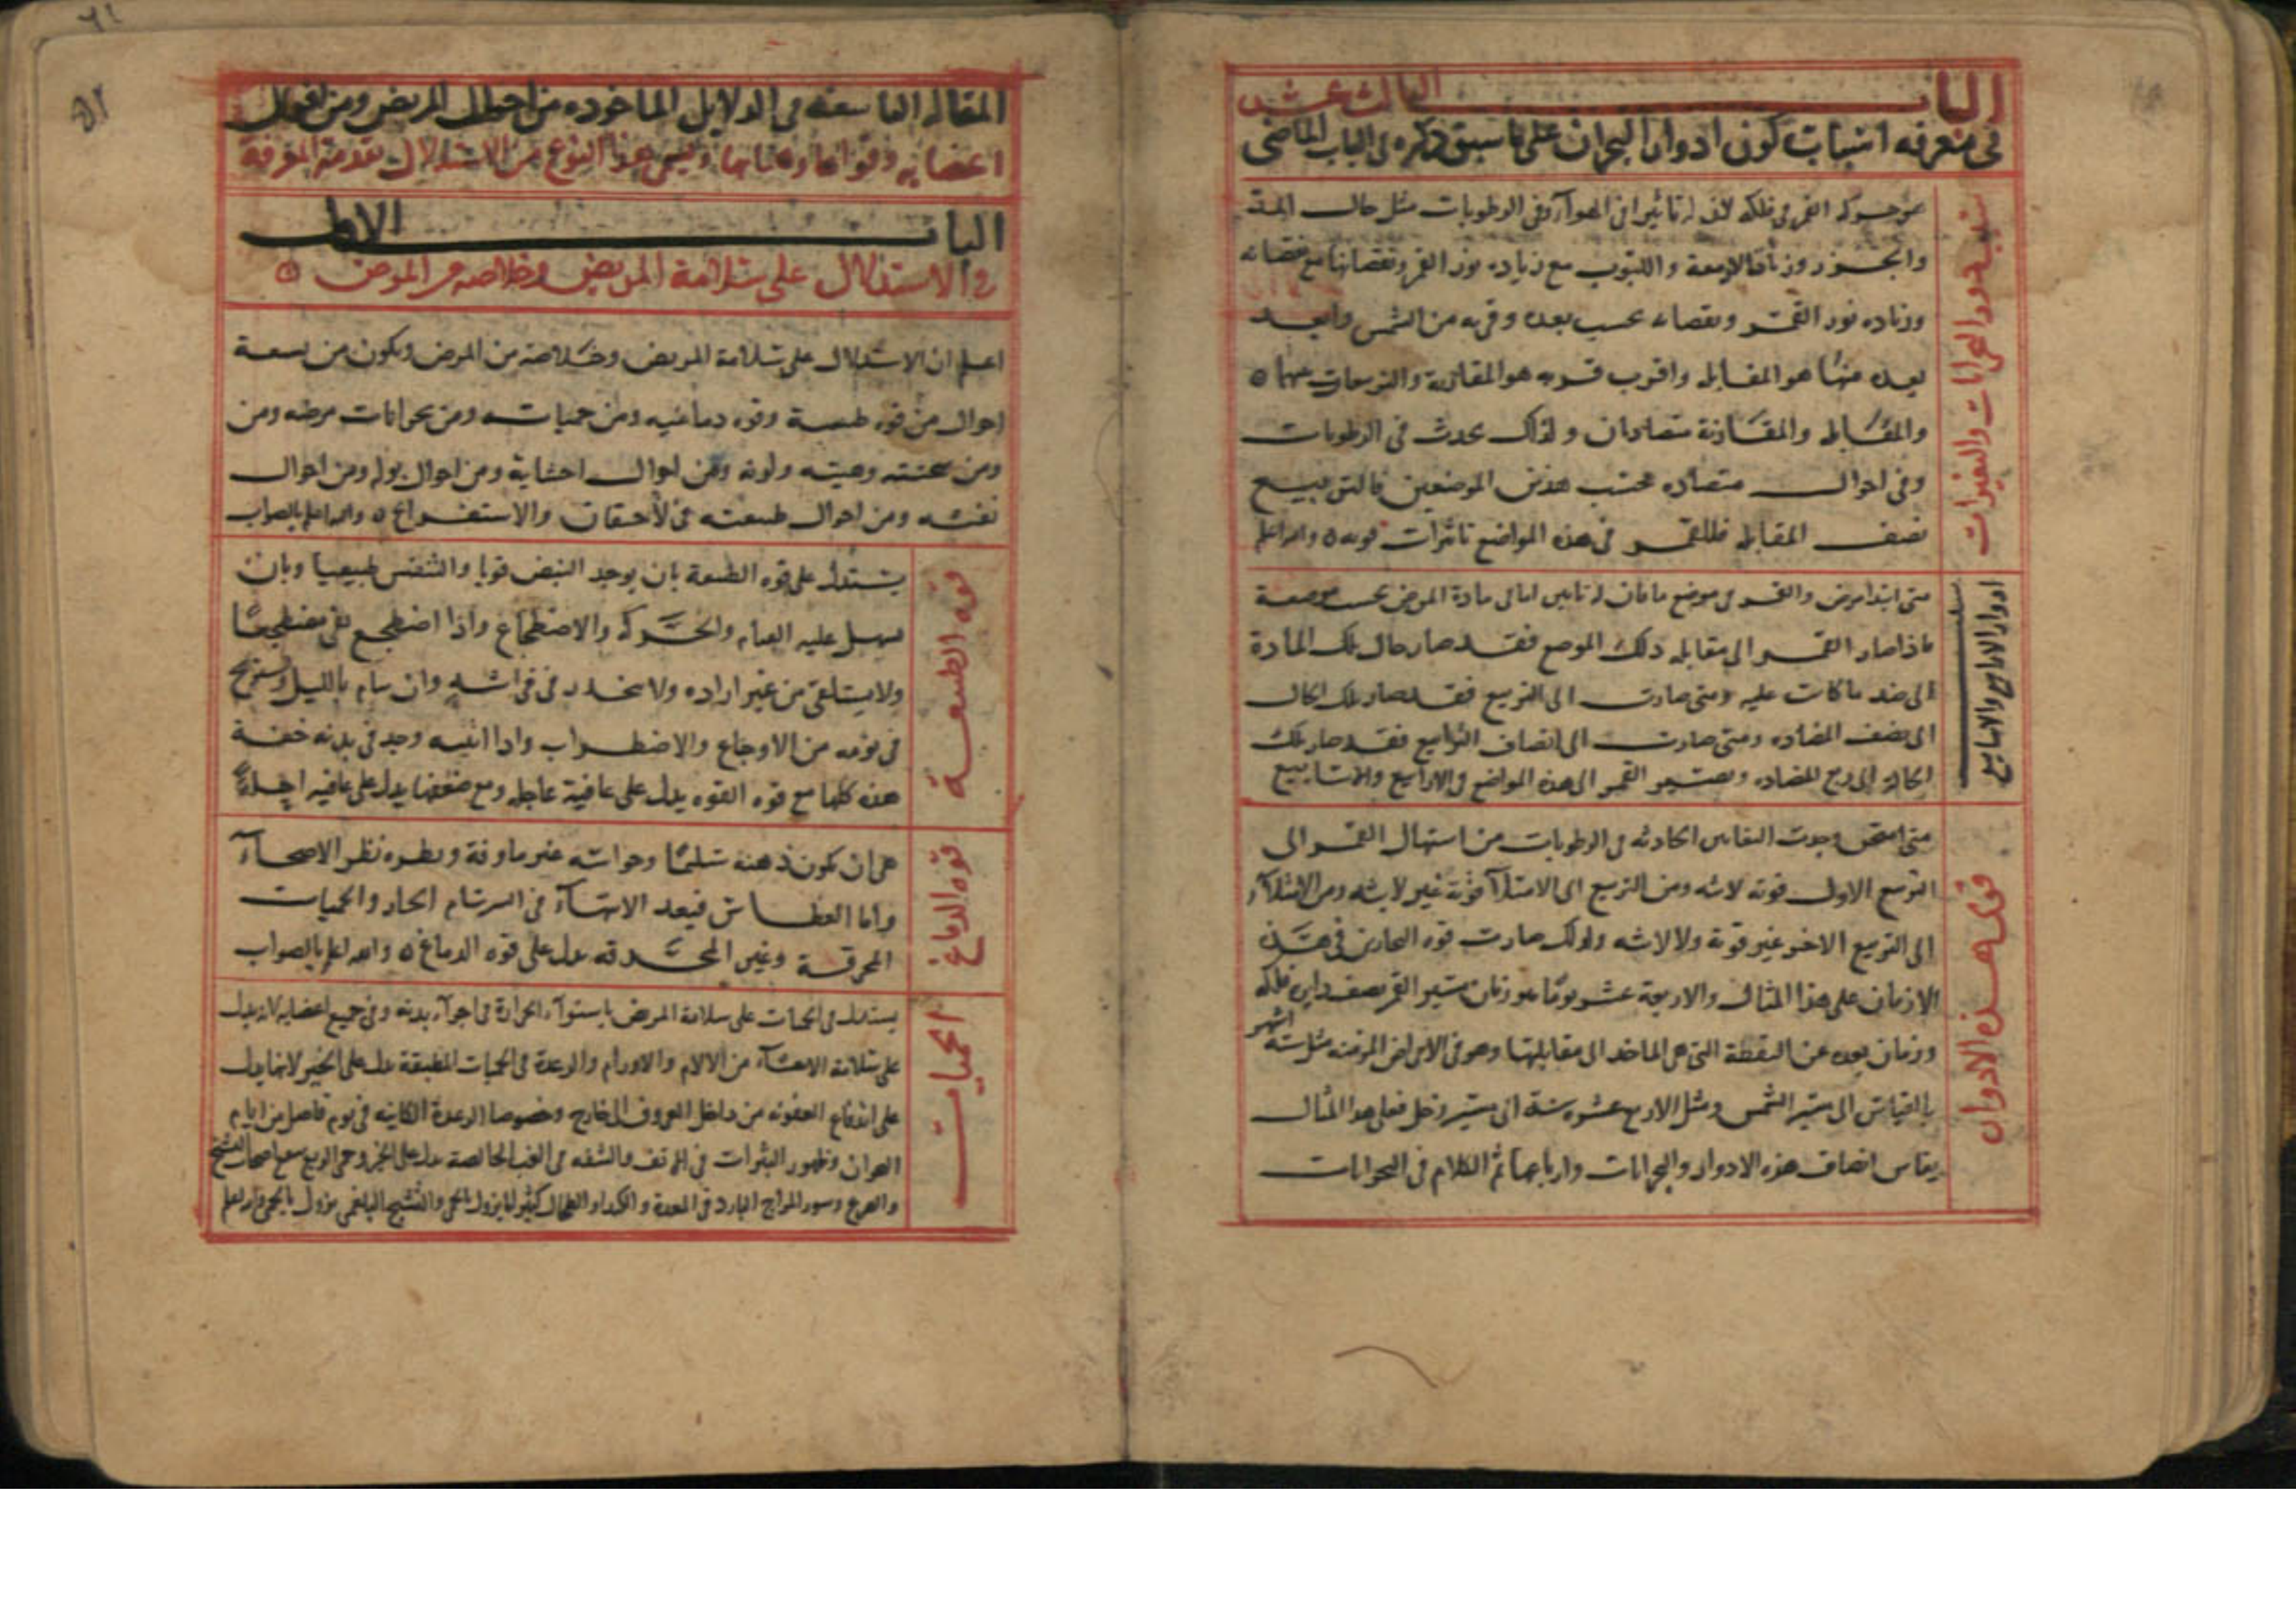 الباب الثالث عشر
في معرفه اسباب كون ادوار البحران على ما سبق ذكره في الباب الماضي
سبب دور البحرانات والتغيرات
هو حركة القمر في فلكه لان له تاثيرا في الهوآ وفي الرطوبات مثل حال المد
والجزر وزيادة الادمغة واللبوب مع زياده نور القمر ونقصانها مع نقصانه
وزياده نور القمر ونقصانه بحسب بعده وقربه من الشمس وابعد
بعده منها هو المقابله واقرب قربه هو المقارنة والتربيعات بينهما ٥
والمقابله والمقارنة متضادان ولذلك يحدث في الرطوبات
وفي احوال متضاده بحسب هذين الموضعين فالتربيع
نصف المقابله فللقمر في هذه المواضع تاثيرات قويه ٥ والله اعلم
ادوار الارابيع والاسابيع
متى ابتدا مرض والقمر في موضع ما فان له تاثيرا ما في مادة المرض بحسب موضعه
فاذا صار القمر الى مقابله ذلك الموضع فقد صار حال تلك المادة
الى ضد ما كانت عليه ومتى صارت الى التربيع فقد صار تلك الحال
الى نصف المضاده ومتى صارت الى انصاف الترابيع فقد صار تلك
الحاله الى ربع المضاده ويصير القمر الى هذه المواضع في الارابيع والاسابيع
قوة هذه الادوار
متى امتحن وجدت التغايير الحادثه في الرطوبات من استهلال القمر الى
التربيع الاول قويه لابثه ومن التربيع الى الامتلآ قويه غير لابثه ومن الامتلآء
الى التربيع الاخر غير قوية ولا لابثه ولذلك صارت قوه البحارين في هذه
الازمان على هذا المثال والاربعة عشر يوما هو زمان مسير القمر نصف دايره فلكه
وزمان بعده عن النقطة التي هي الماخذ الى مقابلتها وهو في الامراض المزمنه مثل سته اشهر
بالقياس الى مسير الشمس ومثل الاربع عشره سنة الى مسير زحل فعلى هذا المثال
يقاس انصاف هذه الادوار والبحرانات وارباعها تم الكلام في البحرانات
المقاله التاسعه في الدلايل الماخوذه من احوال المريض ومن افعال
اعضايه وقواها وحالاتها ويسمى هذا النوع من الاستدلال تقدمة المعرفة
الباب الاول
في الاستدلال على سلامة المريض وخلاصه من المرض ٥
اعلم ان الاستدلال على سلامة المريض وخلاصه من المرض ويكون من تسعة
احوال من قوه طبيعية وقوه دماغيه ومن حميات ومن بحرانات مرضه ومن
ومن سحنته وهيئته ولونه ومن احوال احشايه ومن احوال بوله ومن احوال
نفثه ومن احوال طبيعته في الاحتقان والاستفراغ ٥ والله اعلم بالصواب
قوه الطبيعة
يستدل على قوه الطبيعة بان يوجد النبض قويا والتنفس طبيعيا وبان
يسهل عليه القيام والحركه والاضطجاع واذا اضطجع بقي مضطجعا
ولا يستلقى من غير اراده ولا ينحدر في فراشه وان ينام بالليل ويستريح
في نومه من الاوجاع والاضطراب واذا انتبه وجد في بدنه خفة
هذه كلها مع قوه القوه يدل على عافية عاجله ومع ضعفها يدل على عافيه اجلة
قوه الدماغ
هي ان يكون ذهنه سليما وحواسه غير ماوفة ونظره نظر الاصحآء
واما العطاس فبعد الانتهآء في السرسام الحاد والحميات
المحرقة وغير المحرقه يدل على قوه الدماغ ٥ والله اعلم بالصواب
الحميات
يستدل في الحميات على سلامة المريض باستوآء الحرارة في اجزآء بدنه وفي جميع اعضايه لانه يدل
على سلامة الاحشآء من الالام والاورام والرعدة في الحميات المطبقة يدل على الخير لانها يدل
على اندفاع العفونه من داخل العروق الى خارج وخصوصا الرعدة الكاينه في يوم فاضل من ايام
البحران وظهور البثرات في الانف والشفه في الغب الخالصة يدل على الخير وحمى الربع ينفع اصحاب التشنج
والصرع وسوء المزاج البارد في المعدة والكبد او الطحال كثيرا ما يزول بالحمى والتشنج البلغمي يزول بالحمى